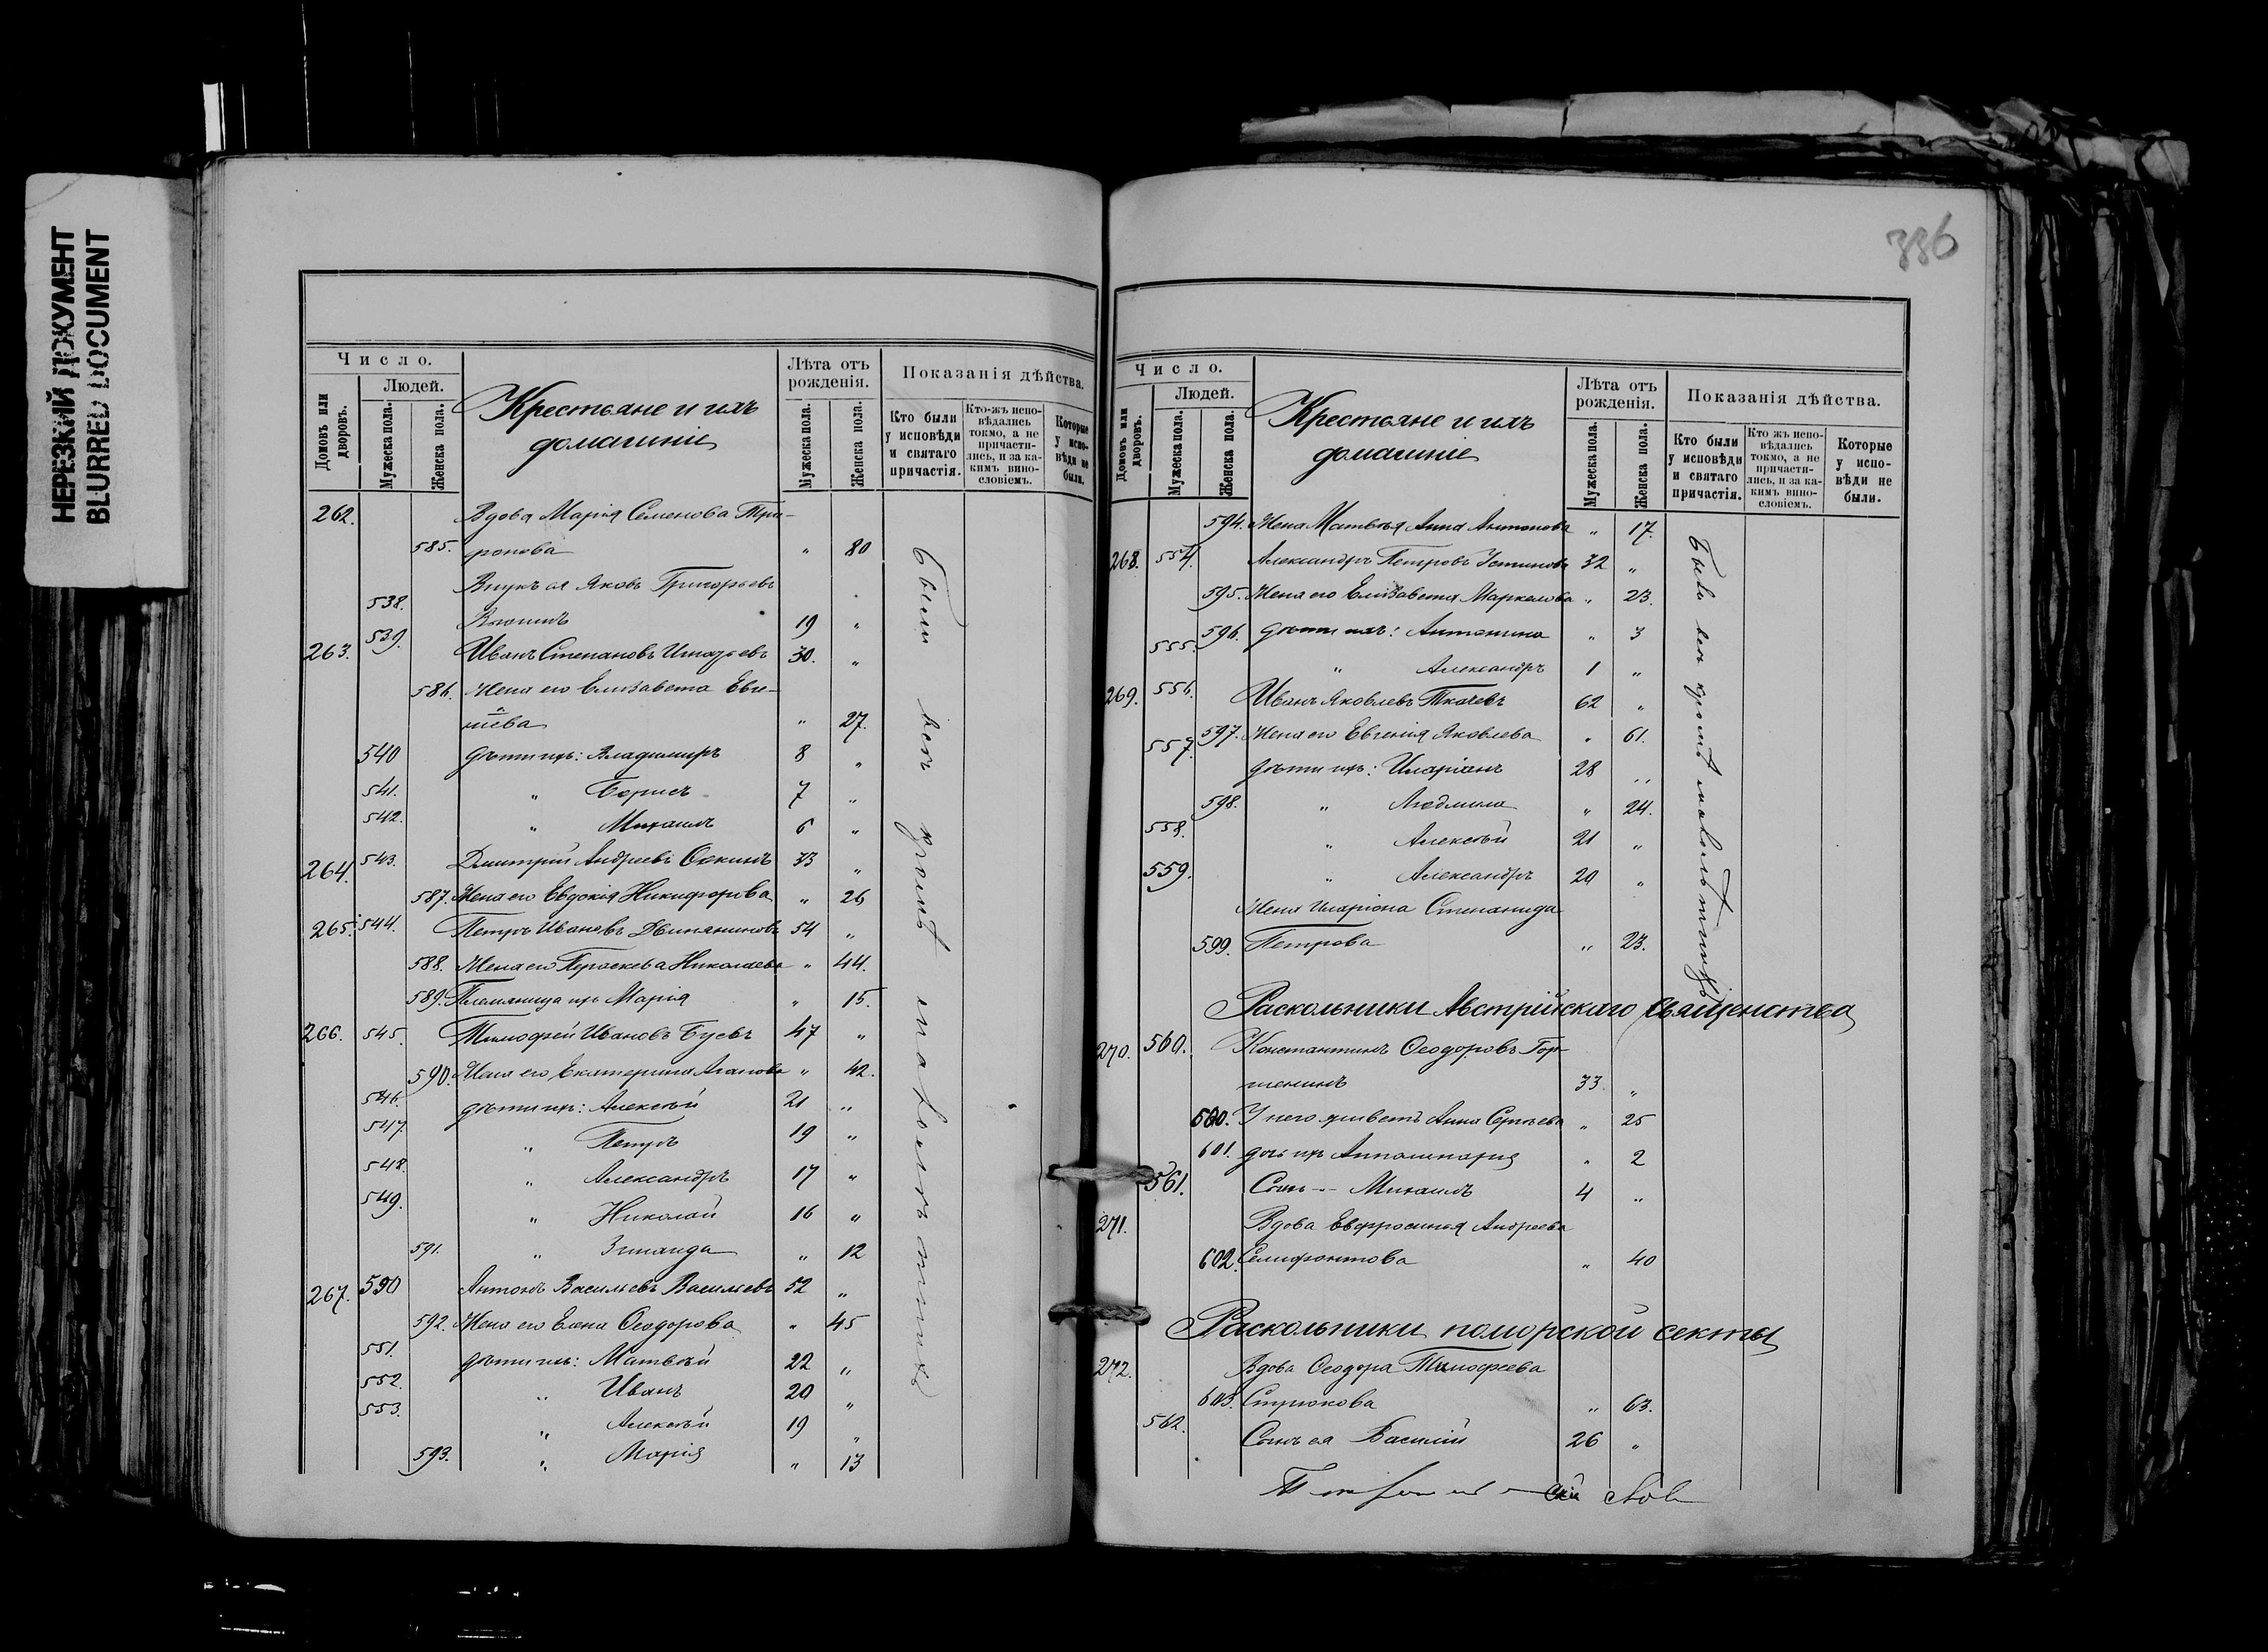 НЕРЕЗКИЙ ДОКУМЕНТ
BLURRED DOCUMENT
Число.
Людей.
Домовъ или дворовъ.
Мужеска пола.
Женска пола.
Крестьяне и ихъ
домашніе
Лѣта отъ рожденія.
Мужеска пола.
Женска пола.
Показанія дѣйства.
Кто были у исповѣди и святаго причастія.
Кто-жъ исповѣдались токмо, а не причастились, и за какимъ винословіемъ.
Которые у исповѣди не были.
262. Вдова Марія Семенова Три-
585. фонова " 80
Внукъ ея Яковъ Григорьевъ
538. 19 "
263. 539. Иванъ Степановъ Игнатьевъ 30. "
586. Жена его Елизавета Евге-
ніева " 27.
540 дѣти ихъ: Владимиръ 8 "
541. " Борисъ 7 "
542. " Михаилъ 6 "
264. 543. Димитрій Андреевъ Оскинъ 33 "
587. Жена его Евдокія Никифорова " 26
265. 544. Петръ Ивановъ Двиняниновъ 54 "
588. Жена его Параскева Николаева " 44.
589. Племяница ихъ Марія " 15.
266. 545. Тимофей Ивановъ Буевъ 47 "
590. Жена его Екатерина Агапова " 42.
546. дѣти ихъ: Алексѣй 21 "
547. " Петръ 19 "
548. " Александръ 17 "
549. " Николай 16 "
591. " Зинаида " 12
267. 550 Антонъ Васильевъ Васильевъ 52 "
592. Жена его Елена Ѳеодорова " 45
551. дѣти ихъ: Матвѣй 22 "
552. " Иванъ 20 "
553. " Алексѣй 19 "
593. " Марія " 13
Были всѣ кромѣ малолѣтнихъ
336
Число.
Людей.
Домовъ или дворовъ.
Мужеска пола.
Женска пола.
Крестьяне и ихъ
домашніе
Лѣта отъ рожденія.
Мужеска пола.
Женска пола.
Показанія дѣйства.
Кто были у исповѣди и святаго причастія.
Кто жъ исповѣдались токмо, а не причастились, и за какимъ винословіемъ.
Которые у исповѣди не были.
594. Жена Матвѣя Анна Антонова " 17.
268. 554. Александръ Петровъ Устиновъ 32 "
595. Жена его Елизавета Маркелова " 23.
596. дѣти ихъ: Антонина " 3
555. " Александръ 1 "
269. 556. Иванъ Яковлевъ Ткачевъ 62 "
597. Жена его Евгенія Яковлева " 61.
557. дѣти ихъ: Иларіонъ 28 "
598. " Людмила " 24.
558. " Алексѣй 21 "
559. " Александръ 20 "
Жена Иларіона Степанида
599. Петрова " 23.
Были всѣ кромѣ малолѣтнихъ
Раскольники Австрійскаго священства
270. 560. Константинъ Ѳеодоровъ Гор-
шенинъ 33 "
600. У него живетъ Анна Сергѣева " 25
601. дочь ихъ Апполинарія " 2
561. Сынъ -- Михаилъ 4 "
271. Вдова Евфросинья Андреева
602. Селифонтова " 40
Раскольники поморской секты
272. Вдова Ѳеодора Тимофеева
603. Стрюкова " 63.
562. Сынъ ея Василій 26 "